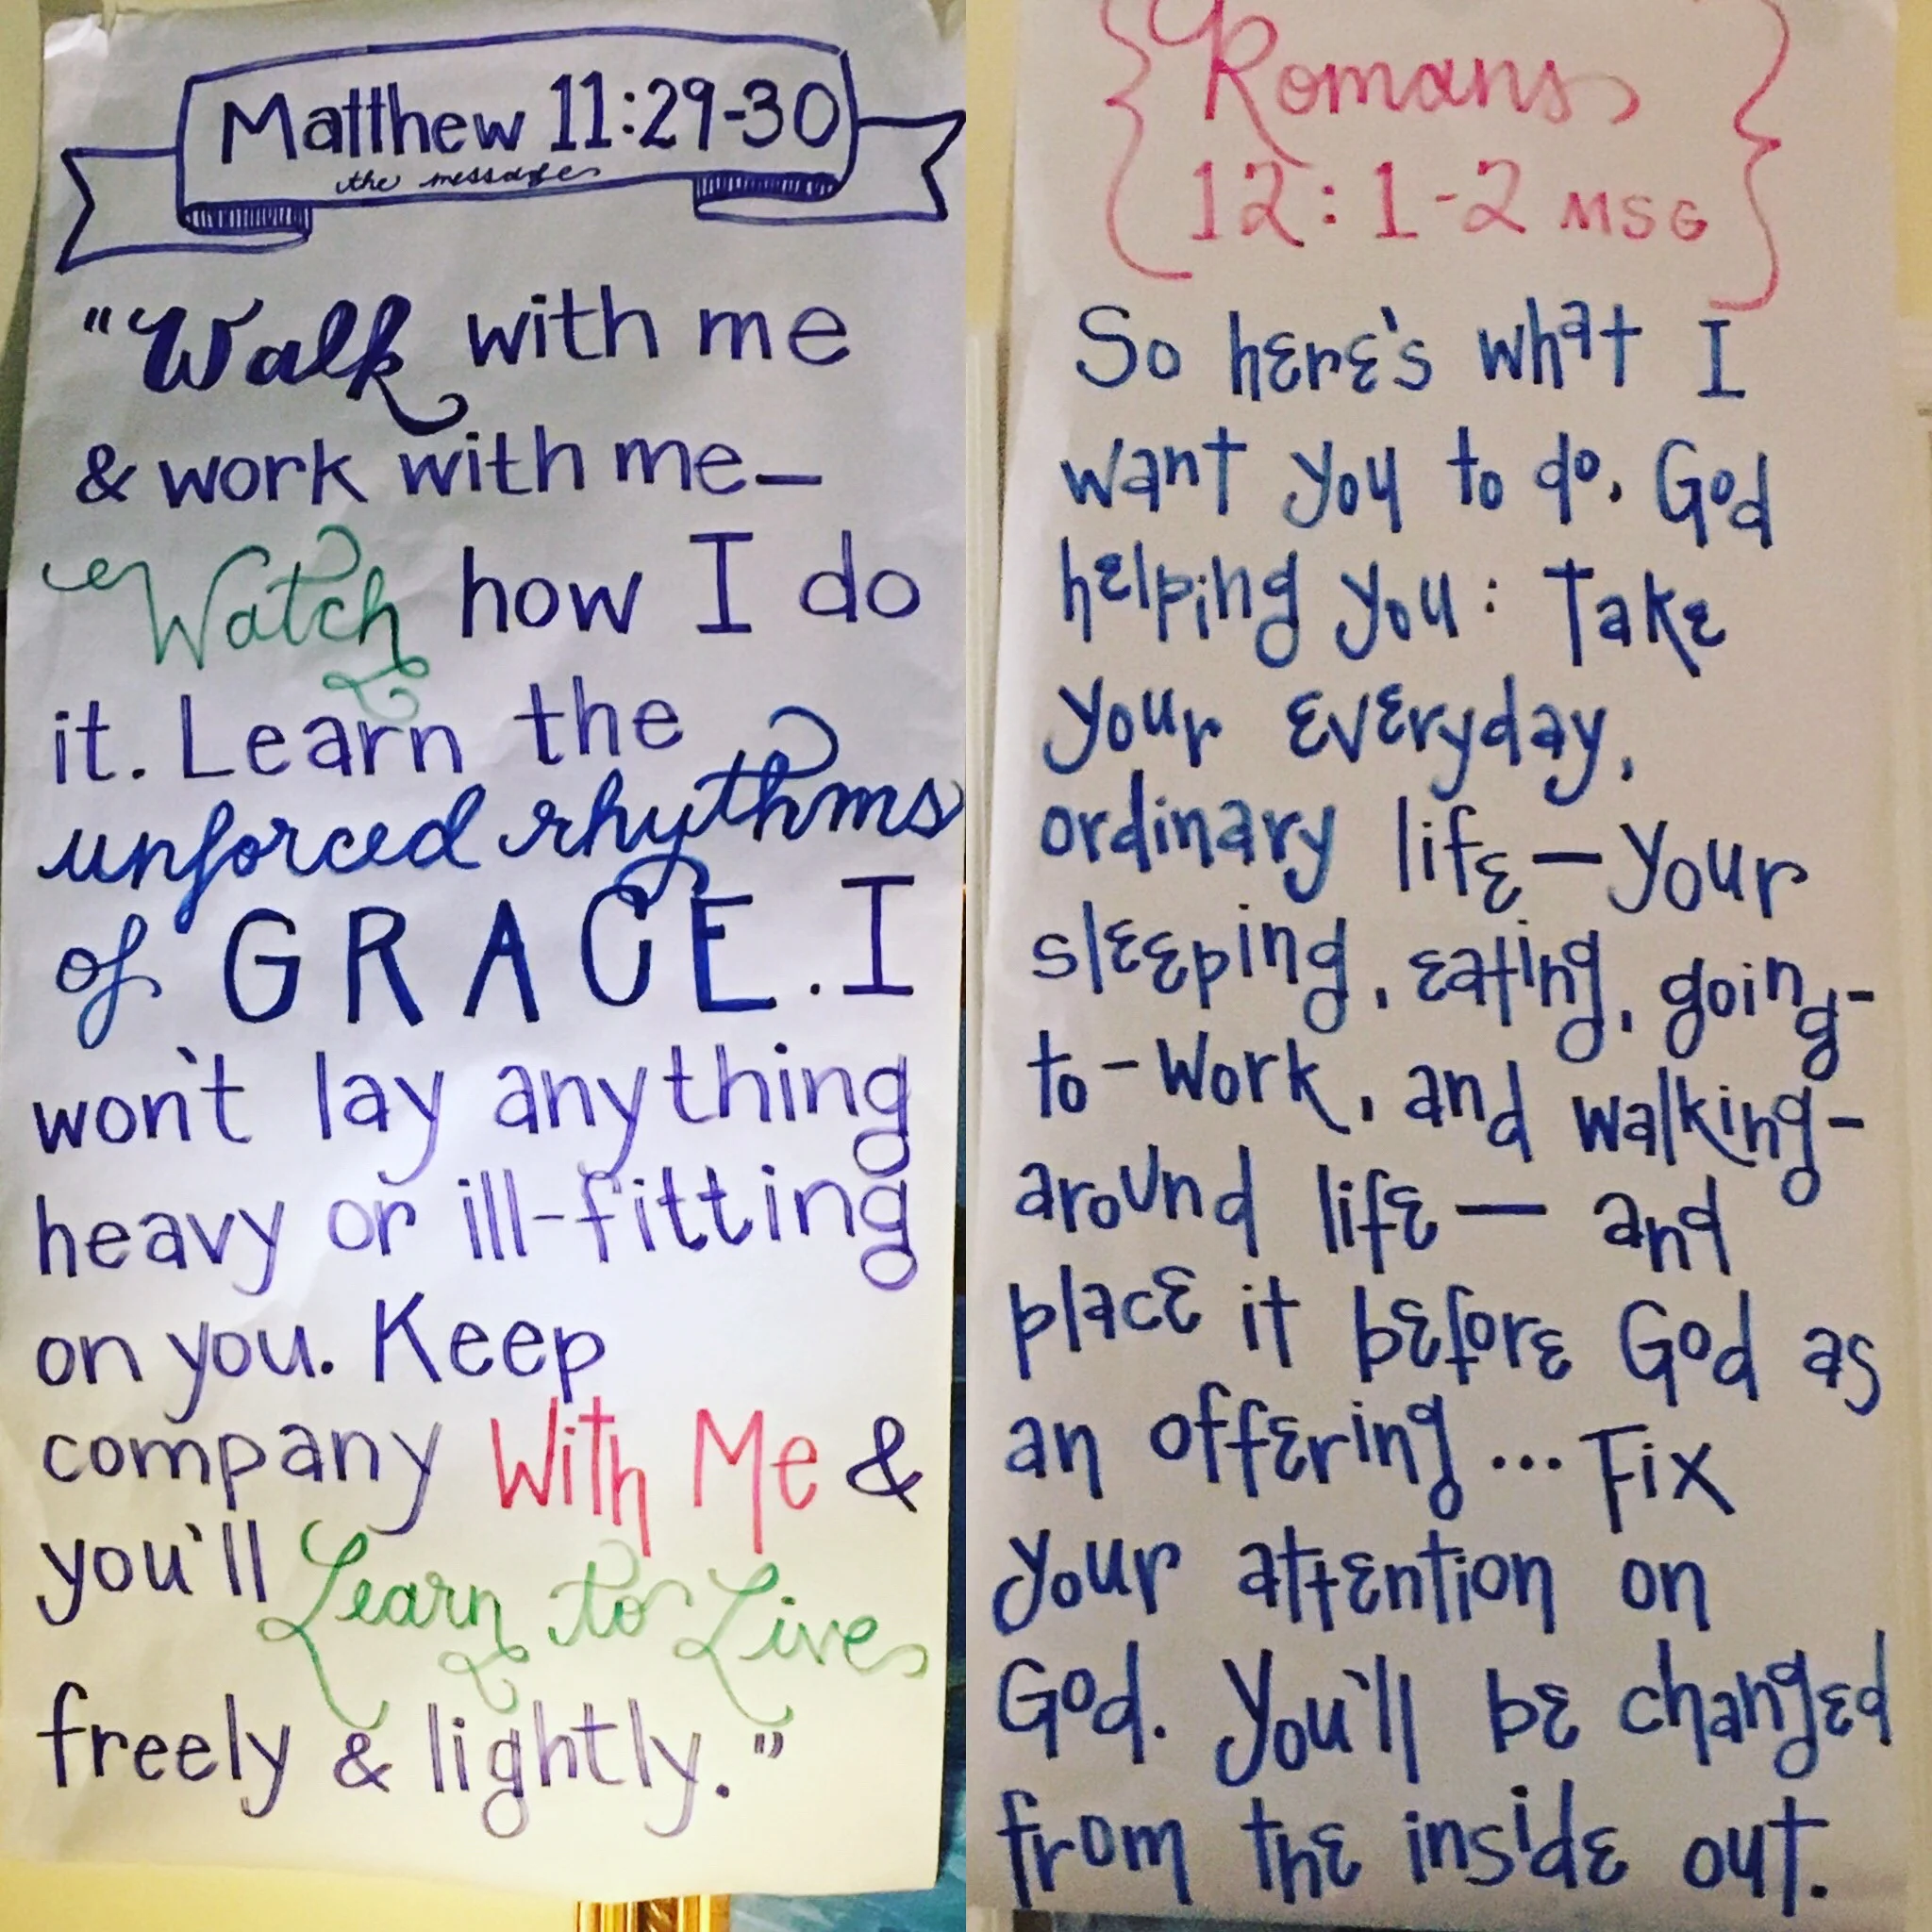 Matthew 11:29-30
the message
"Walk with me
& work with me—
Watch how I do
it. Learn the
unforced rhythms
of GRACE. I
won't lay anything
heavy or ill-fitting
on you. Keep
company With Me &
you'll Learn to Live
freely & lightly."
Romans
12:1-2 MSG
So here's what I
want you to do, God
helping you: Take
your everyday,
ordinary life—your
sleeping, eating, going-
to-work, and walking-
around life— and
place it before God as
an offering... Fix
your attention on
God. You'll be changed
from the inside out.